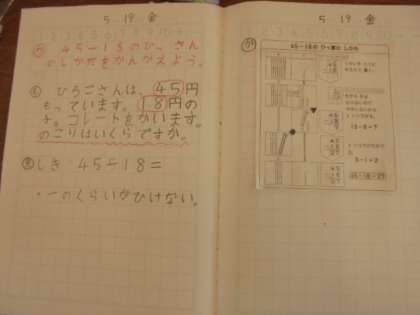 5 19 金
45−18のひっさん
のしかたをかんがえよう。
ひろこさんは、45円
もっています。18円の
チョコレートをかいます。
のこりはいくらですか。
しき 45−18=
・一のくらいがひけない。
5 19 金
45−18の ひっ算の しかた
15−8=7
3−1=2
45−18=27